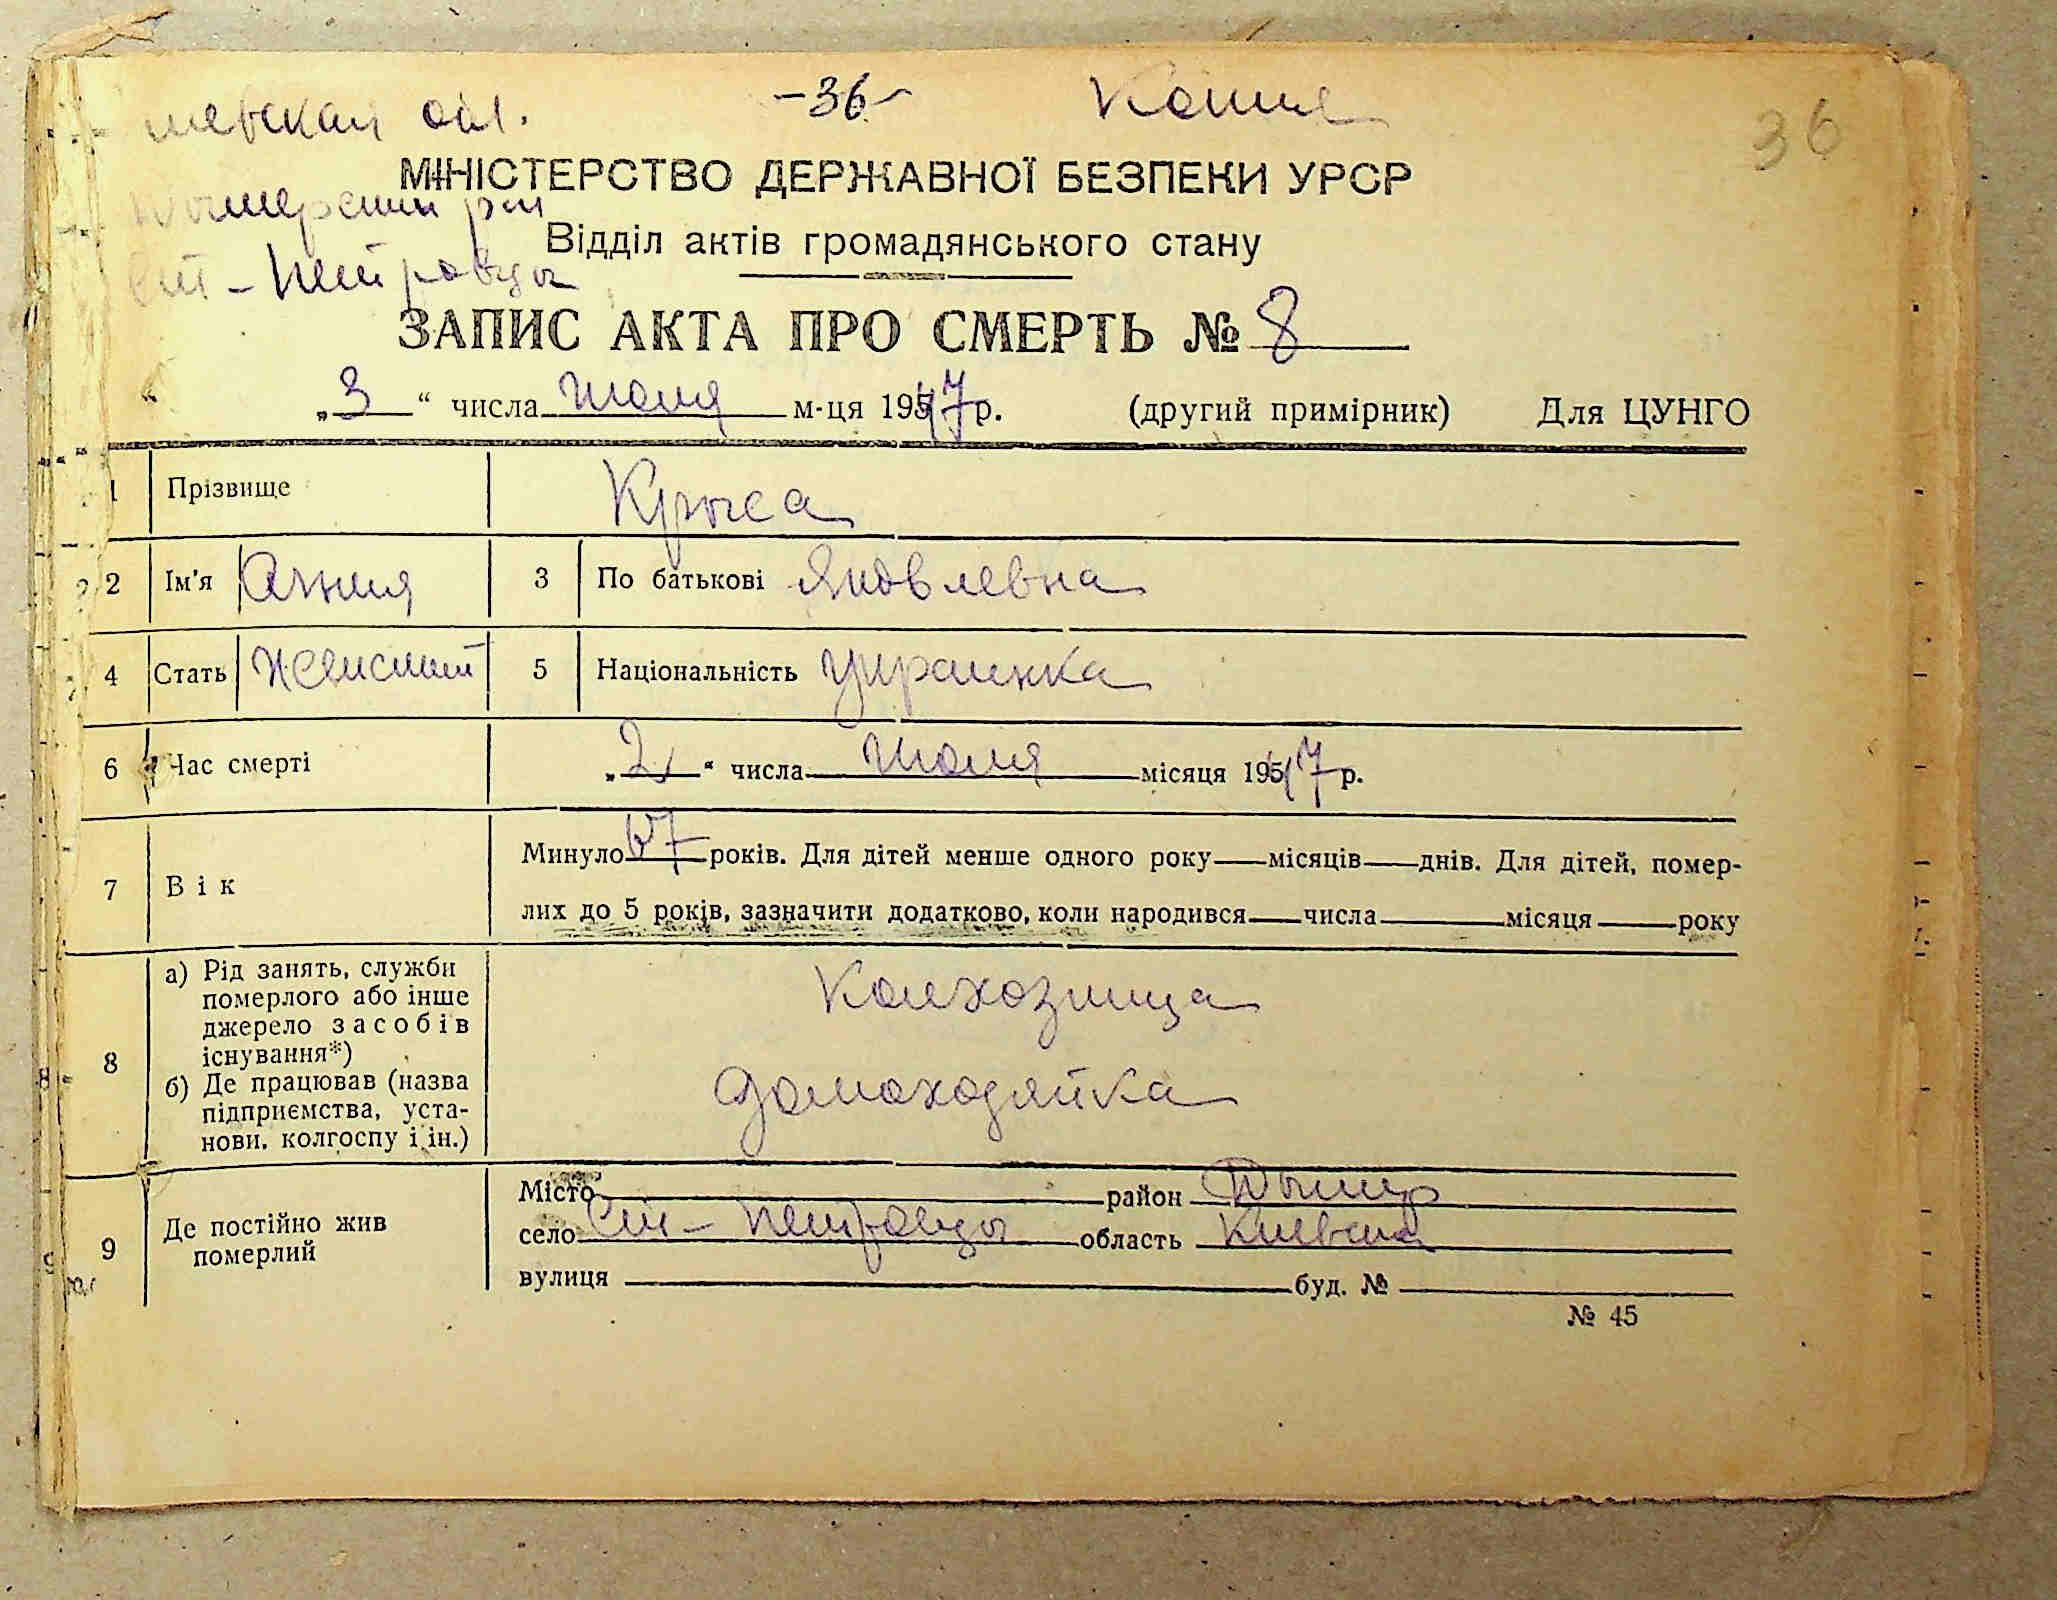 -36- Копия 36
иевская обл.
МІНІСТЕРСТВО ДЕРЖАВНОЇ БЕЗПЕКИ УРСР
Дымерский р-н
Відділ актів громадянського стану
Ст-Петровцы
ЗАПИС АКТА ПРО СМЕРТЬ № 8
„3“ числа июля м-ця 1947 р. (другий примірник) Для ЦУНГО
1 Прізвище Крыса
2 Ім'я Анния 3 По батькові Яковлевна
4 Стать женский 5 Національність украинка
6 Час смерті „2“ числа июля місяця 1947 р.
7 Вік Минуло 67 років. Для дітей менше одного року — місяців — днів. Для дітей, помер-
лих до 5 років, зазначити додатково, коли народився — числа — місяця — року
8 а) Рід занять, служби
померлого або інше
джерело засобів
існування*)
Колхозница
б) Де працював (назва
підприємства, уста-
нови, колгоспу і ін.)
домохозяйка
9 Де постійно жив
померлий
Місто район Дымер
село Ст-Петровцы область Киевская
вулиця буд. №
№ 45